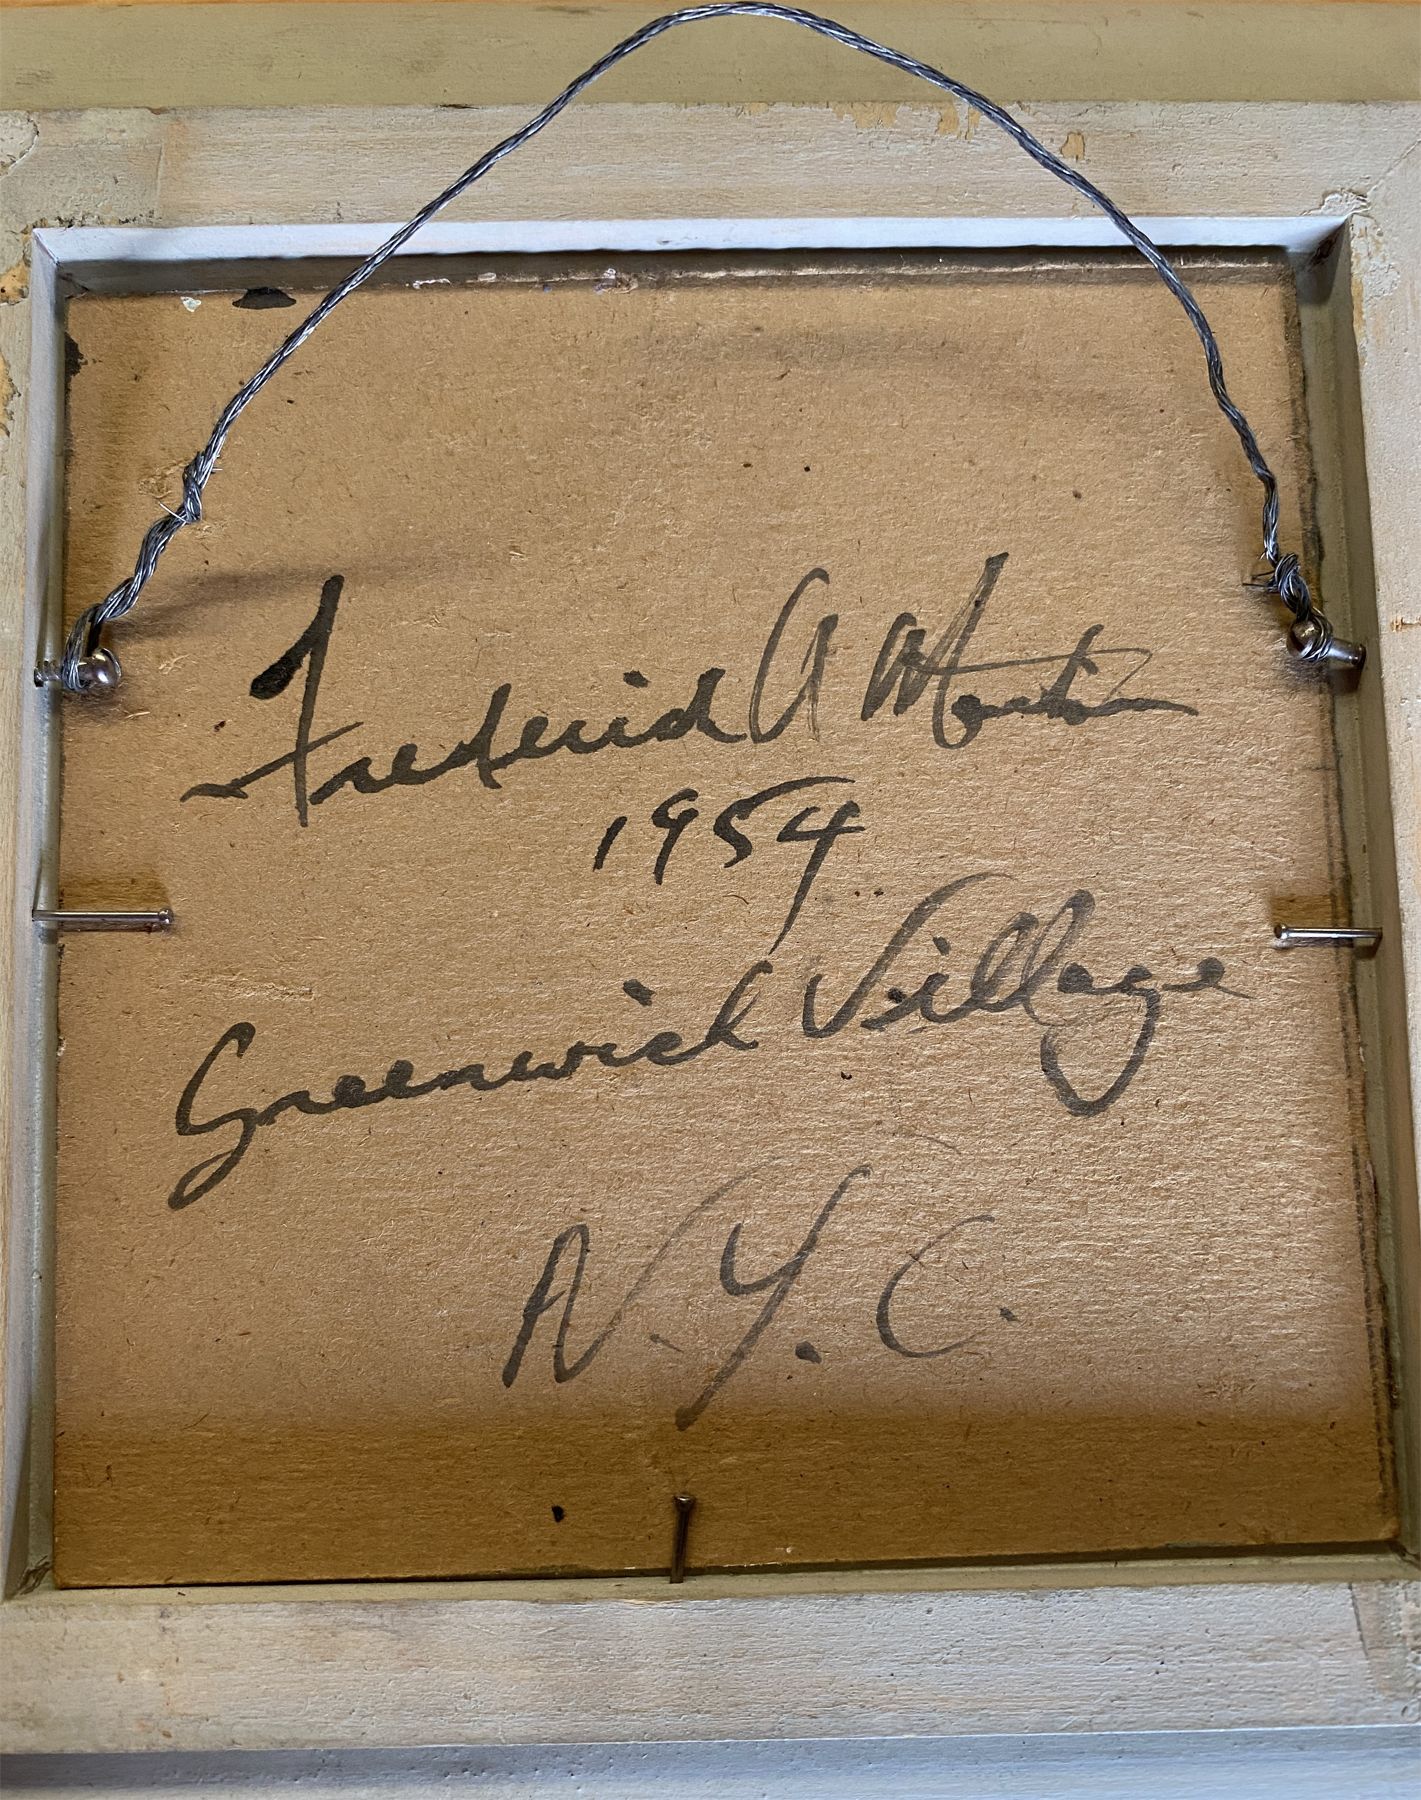 Frederick A Martin
1954
Greenwich Village
N.Y.C.